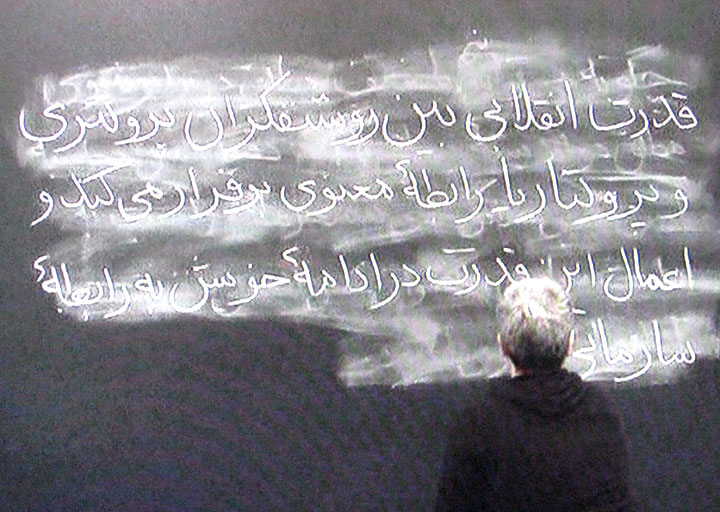 قدرت انقلابی بین روشنفکران پرولتری
و پرولتاریا رابطهٔ معنوی برقرار می کند و
اعمال این قدرت در ادامهٔ خویش به رابطهٔ
سازمانی